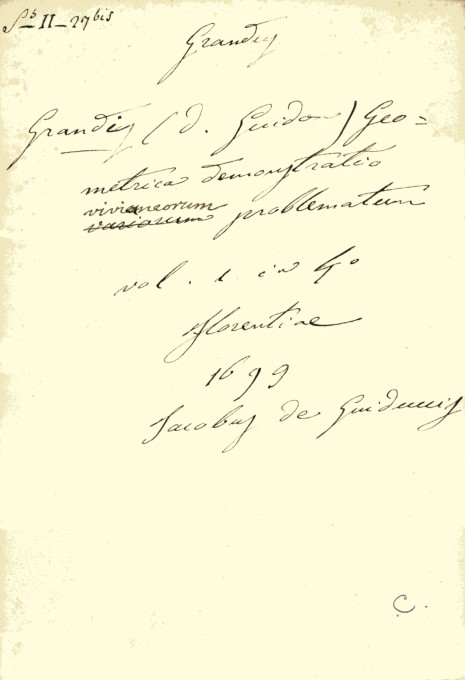 S^b II - 27 bis
Grandis
Grandis (d. Guido) Geo=
metrica demonstratio
vivianeorum
variarum problematum
vol. 1 in 4°
Florentiae
1699
Jacobus de Guiduccis
C.